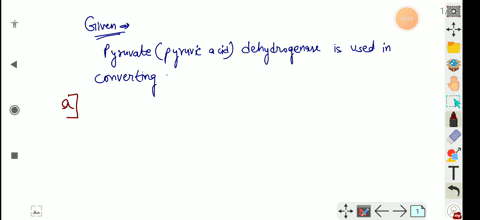 Given →
Pyruvate (pyruvic acid) dehydrogenase is used in
converting
a]